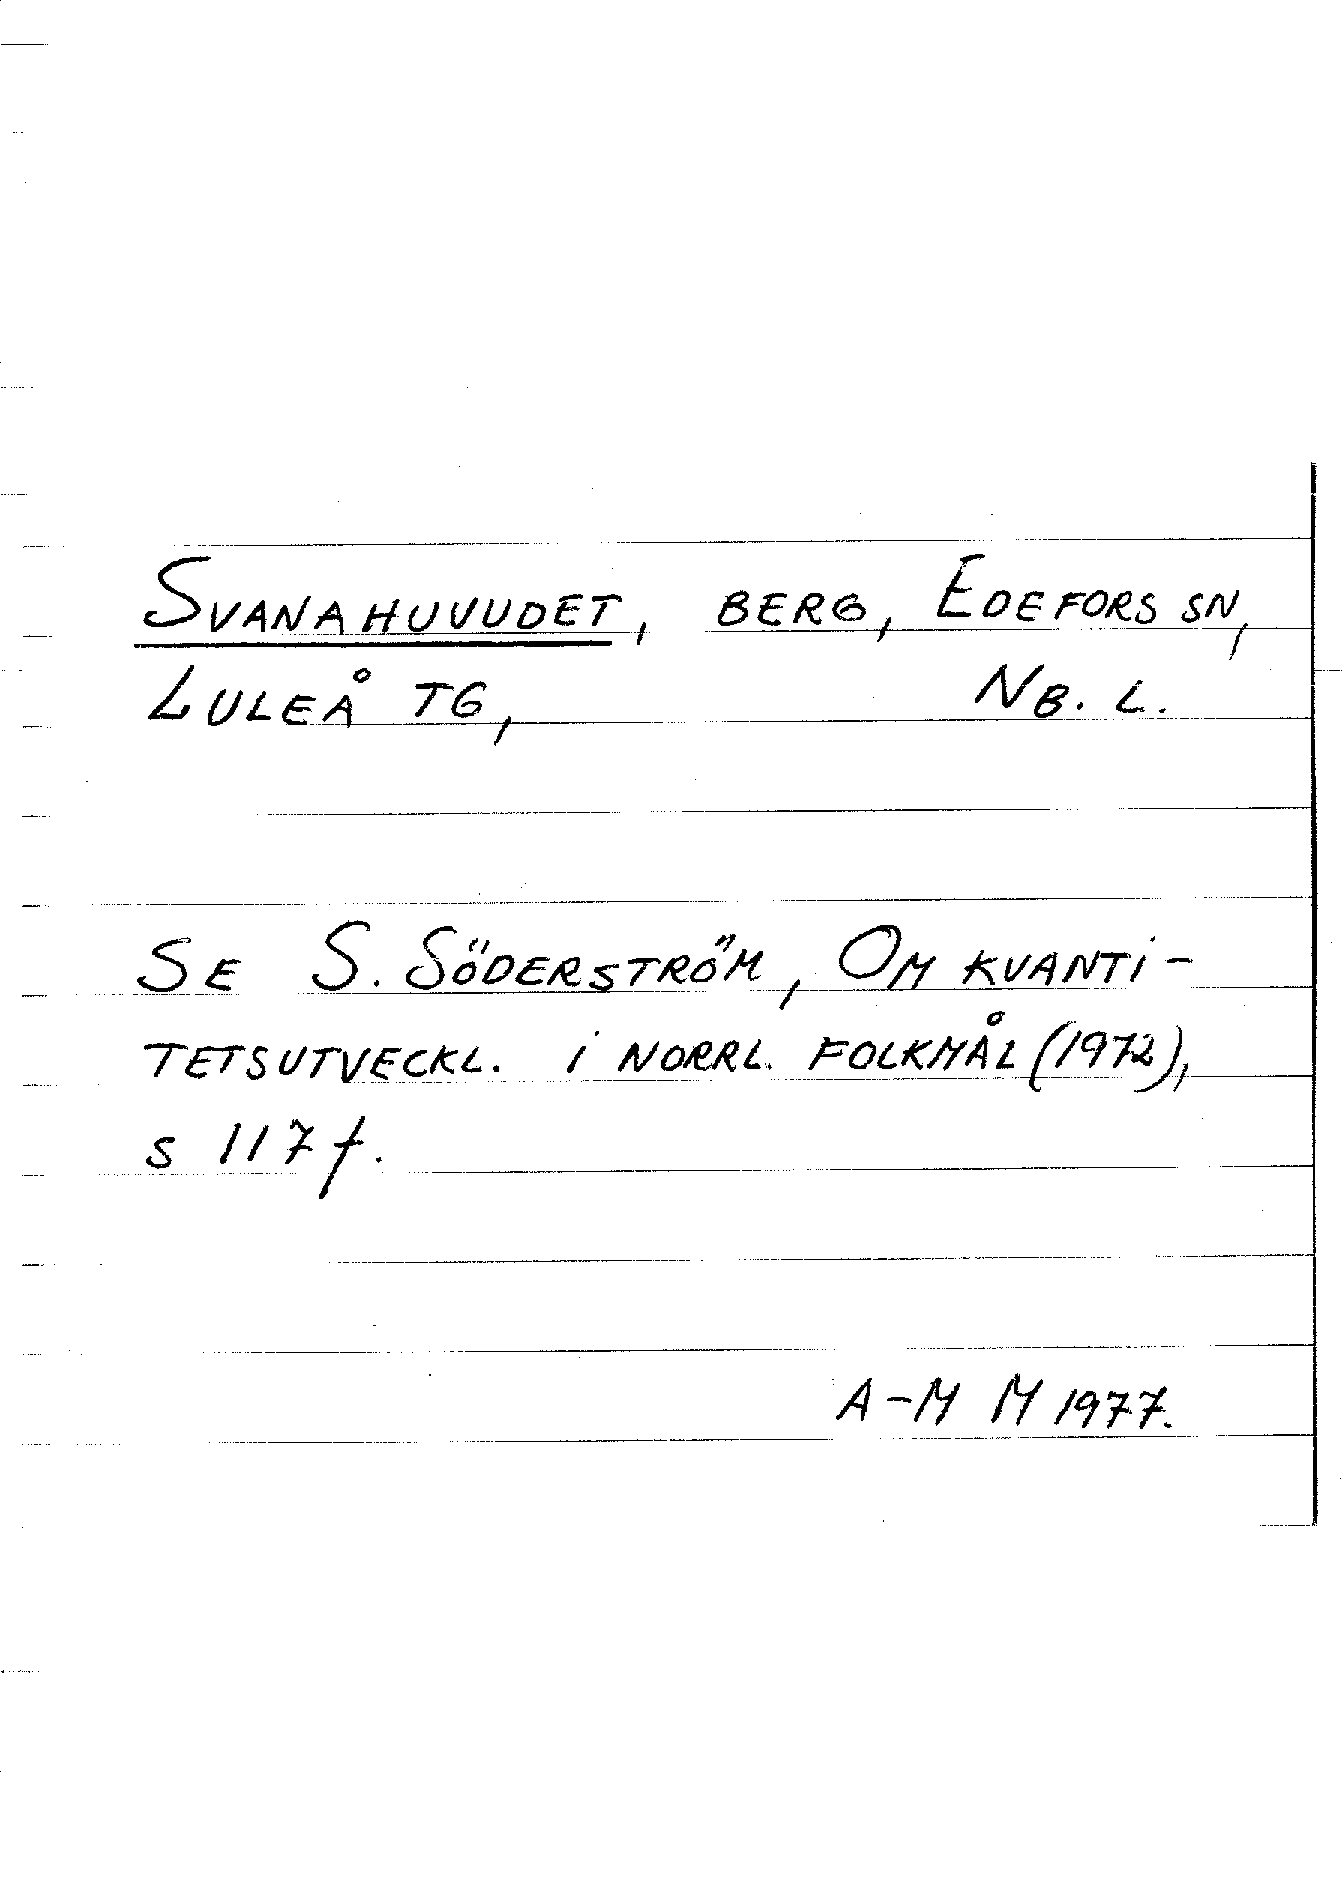 SVANAHUVUDET, BERG, EDEFORS SN,
LULEÅ TG, NB. L.
SE S. SÖDERSTRÖM, OM KVANTI-
TETSUTVECKL. I NORRL. FOLKMÅL (1972),
S 117 f.
A-M M 1977.